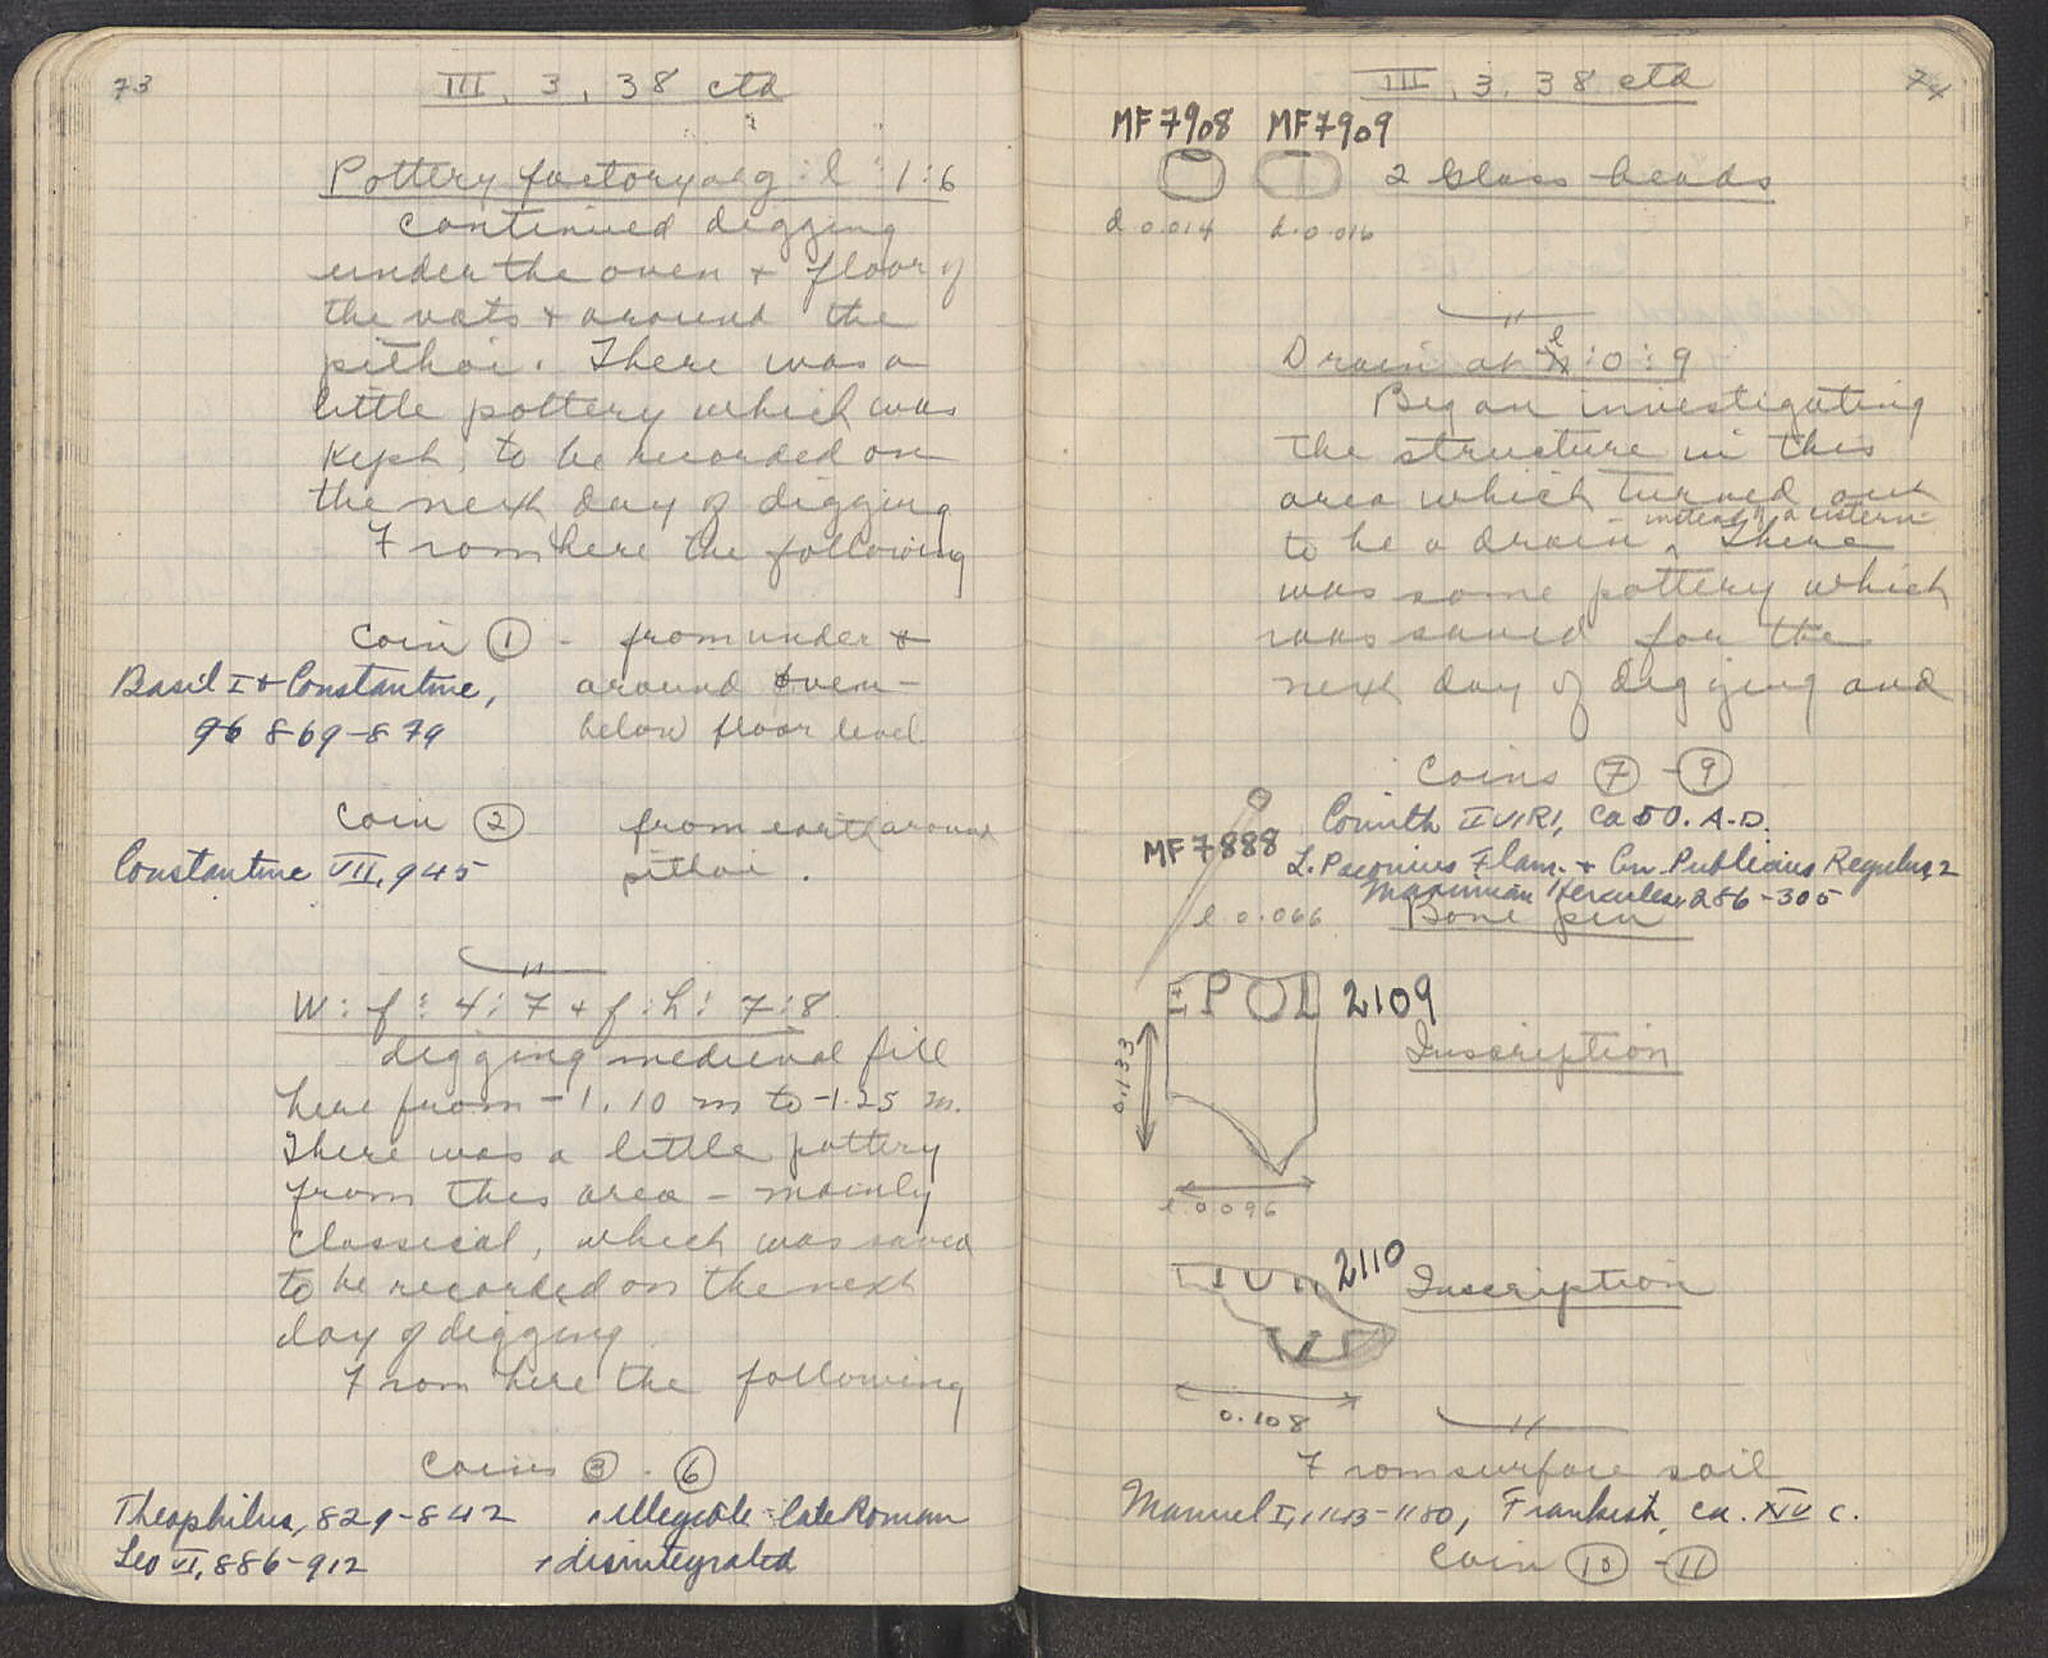 73
III, 3, 38 ctd
Pottery factory at g : l : 1 : 6
continued digging
under the oven + floor of
the vats + around the
pithoi. There was a
little pottery which was
kept, to be recorded on
the next day of digging
From here the following
Coin ① - from under +
Basil I + Constantine, around oven -
96 869-879 below floor level
Coin ② from earth around
Constantine VII, 945 pithoi.
W : f : 4 : 7 + f : h : 7 : 8
digging medieval fill
here from -1.10 m to -1.25 m.
There was a little pottery
from this area - mainly
classical, which was saved
to be recorded on the next
day of digging
From here the following
Coins ③ - ⑥
Theophilus, 829-842 1 illegible - late Roman
Leo VI, 886-912 1 disintegrated
74
III, 3, 38 ctd
MF 7908 MF 7909
2 Glass beads
d 0.014 d. 0.016
Drain at l : 0 : 9
Began investigating
the structure in this
area which turned out
to be a drain instead of a cistern. There
was some pottery which
was saved for the
next day of digging and
Coins ⑦ - ⑨
Corinth II VIRI, ca 50. A.D.
MF 7888
L. Paconius Flam. + Cn. Publicius Regulus, 2
Maximian Hercules, 286-305
l 0.066 Bone pin
EPOL 2109
Inscription
0.133
l 0.096
2110 Inscription
0.108
From surface soil
Manuel I, 1143-1180, Frankish, ca. XIV c.
Coin ⑩ - ⑪